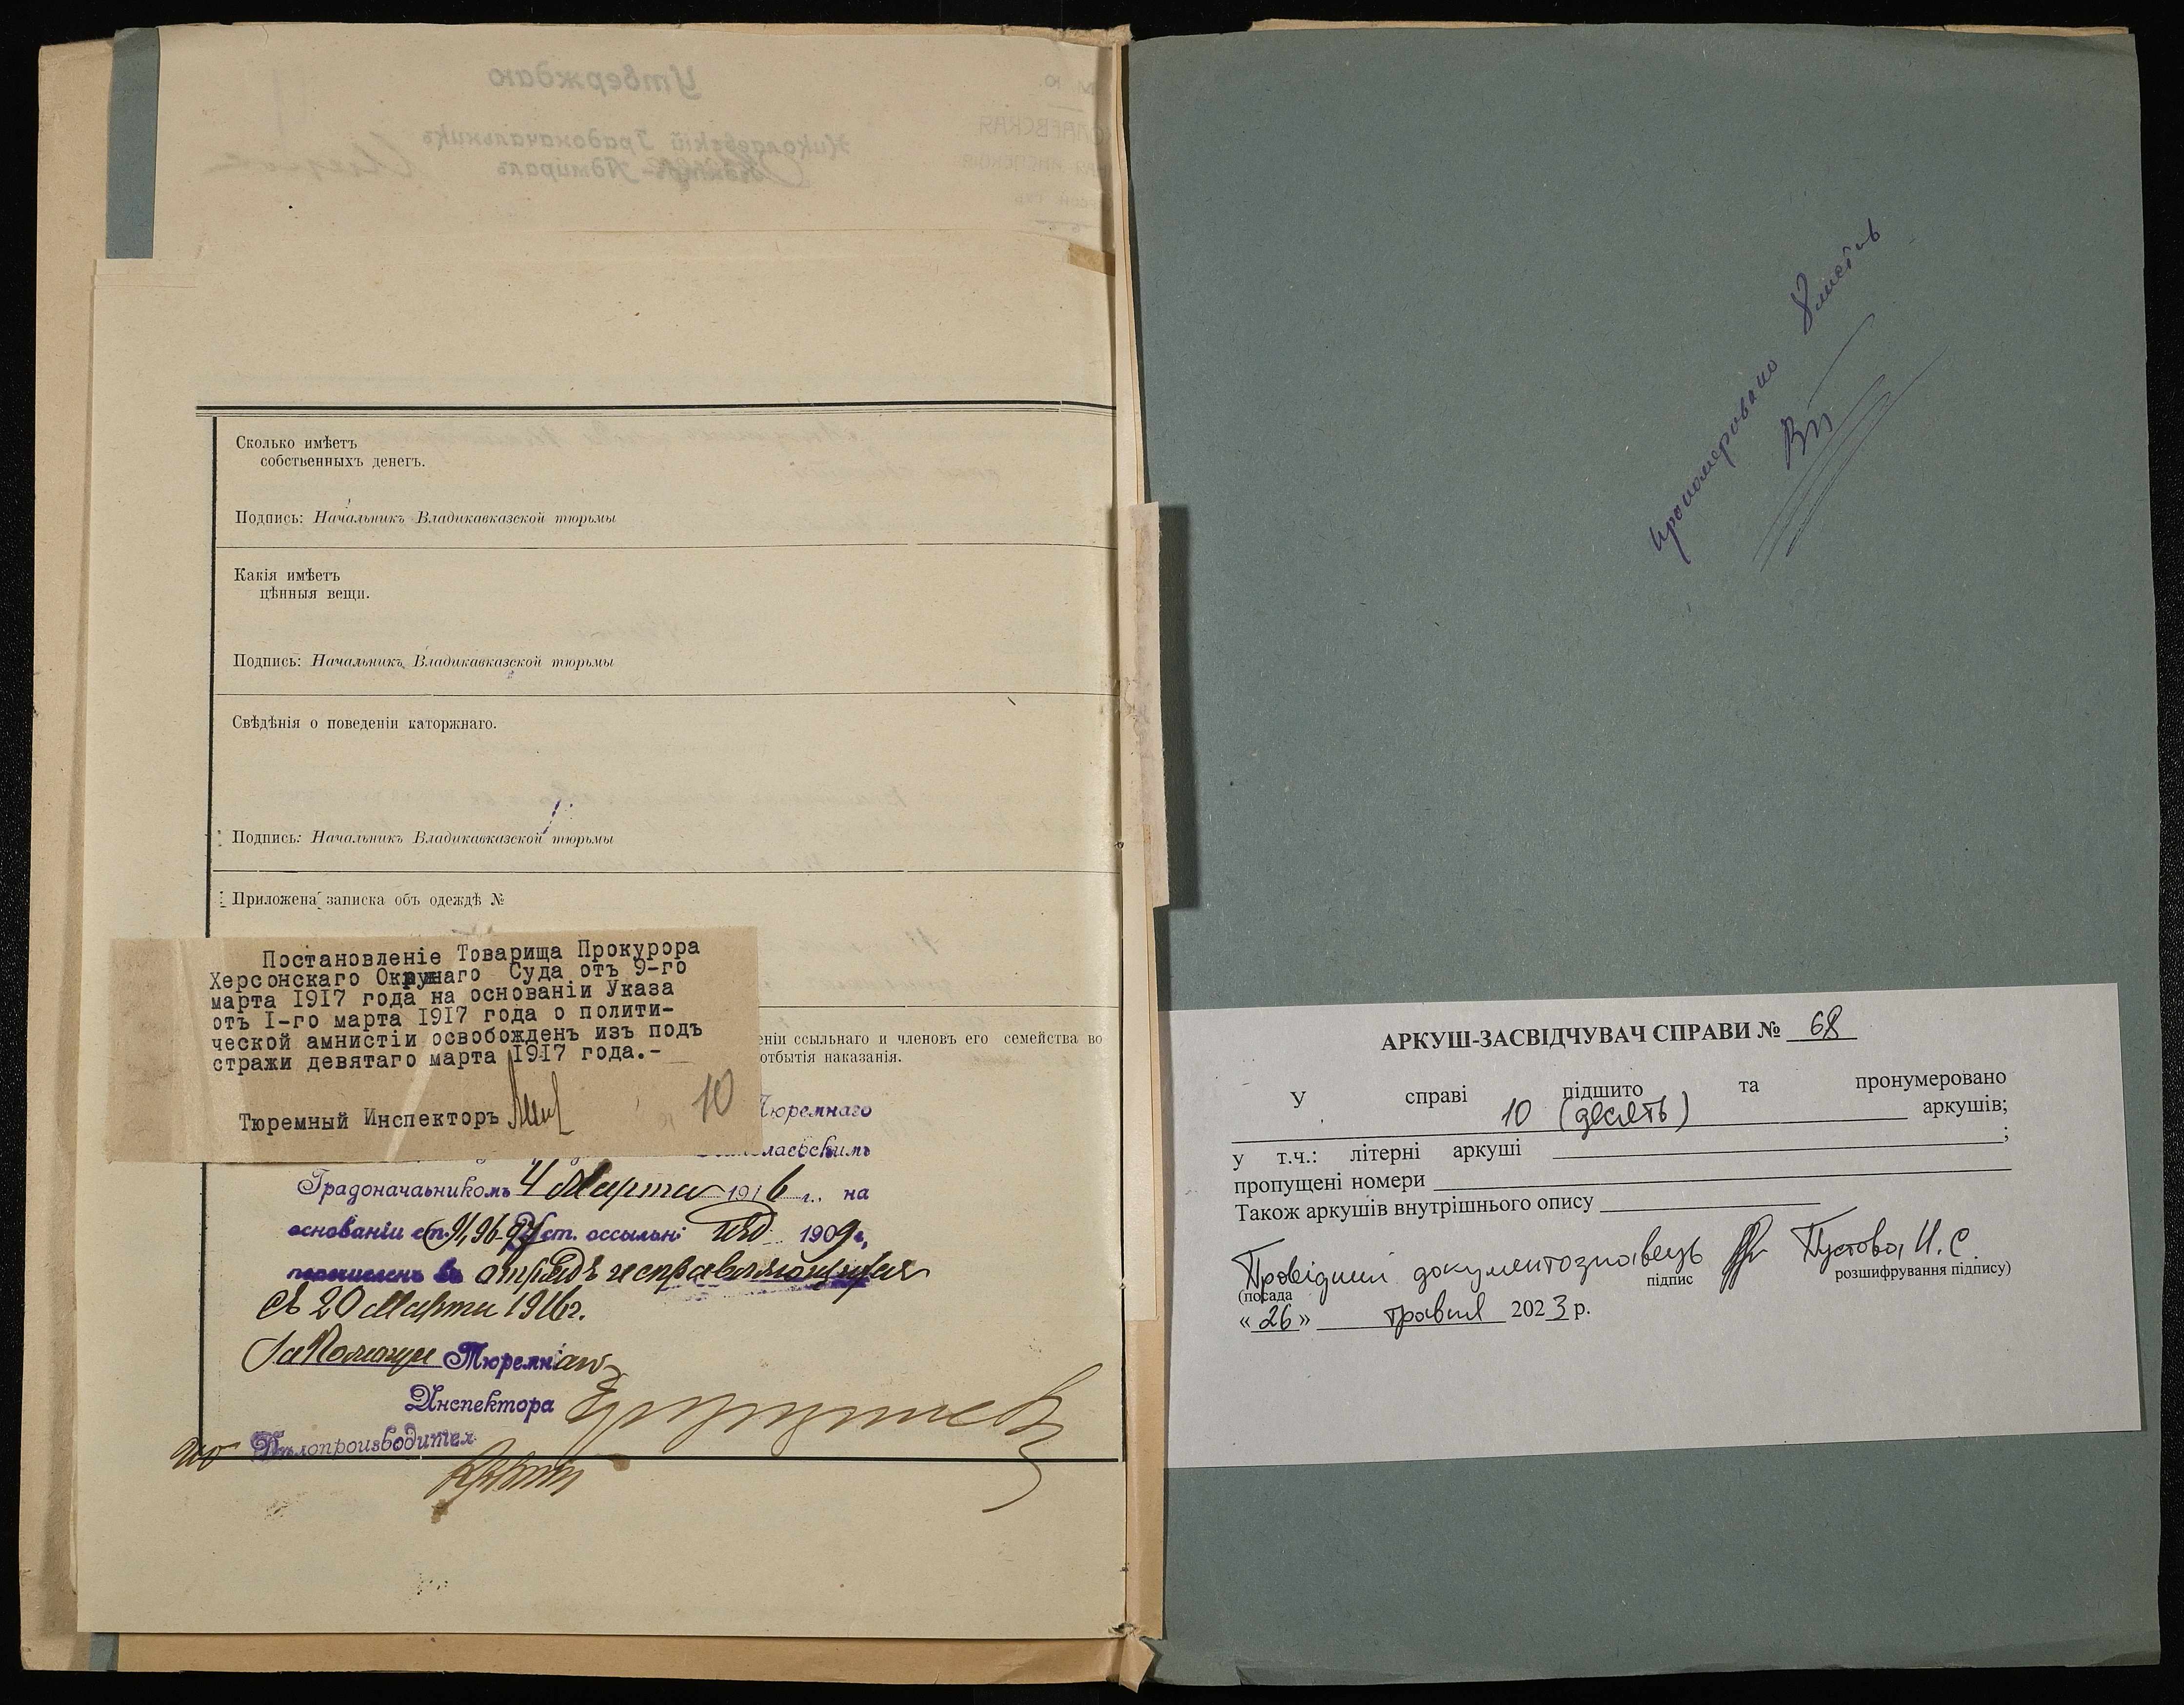 Утверждаю
Николаевскій Градоначальникъ
Адмиралъ
Сколько имѣетъ
собственныхъ денегъ.
Подпись: Начальникъ Владикавказской тюрьмы
Какія имѣетъ
цѣнныя вещи.
Подпись: Начальникъ Владикавказской тюрьмы
Свѣдѣнія о поведеніи каторжнаго.
Подпись: Начальникъ Владикавказской тюрьмы
Приложена записка объ одеждѣ №
Постановленіе Товарища Прокурора
Херсонскаго Окружнаго Суда отъ 9-го
марта 1917 года на основаніи Указа
отъ I-го марта 1917 года о полити-
ческой амнистіи освобожденъ изъ подъ
стражи девятаго марта 1917 года.-
Тюремный Инспекторъ
10
еніи ссыльнаго и членовъ его семейства во
отбытія наказанія.
Тюремнаго
лаевскимъ
Градоначальникомъ 4 Марта 1916 г. на
основаніи ст. 91, 96-97 Уст. оссыльн: изд 1909 г,
перечисленъ въ отрядъ исправляющихся
съ 20 Марта 1916 г.
За Помощн Тюремнаго
Инспектора
Дѣлопроизводител
пронумеровано 8 листів
АРКУШ-ЗАСВІДЧУВАЧ СПРАВИ № 68
У справі підшито та пронумеровано
10 (десять) аркушів;
у т.ч.: літерні аркуші ;
пропущені номери
Також аркушів внутрішнього опису
Провідний документознавець Пустова, Н. С
(посада підпис розшифрування підпису)
« 26 » травня 2023 р.